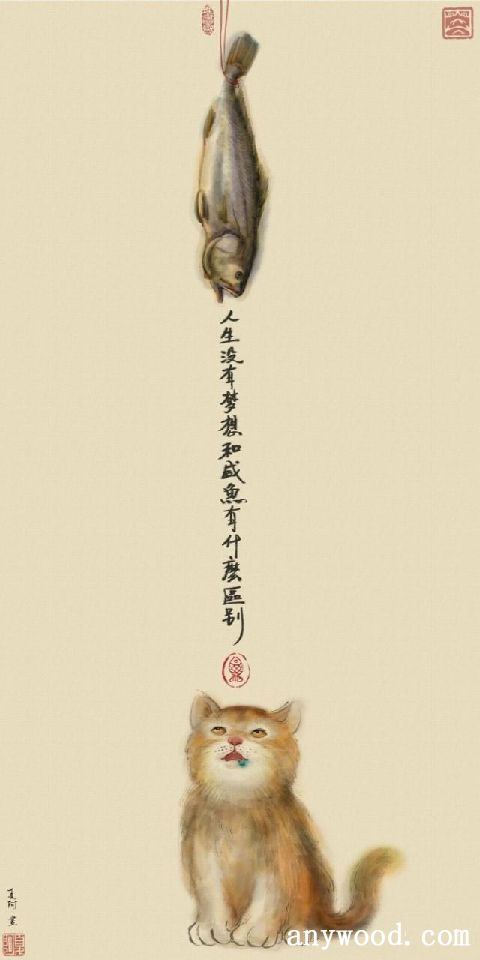 人生没有梦想和咸魚有什麽區别
夏阿
anywood.com